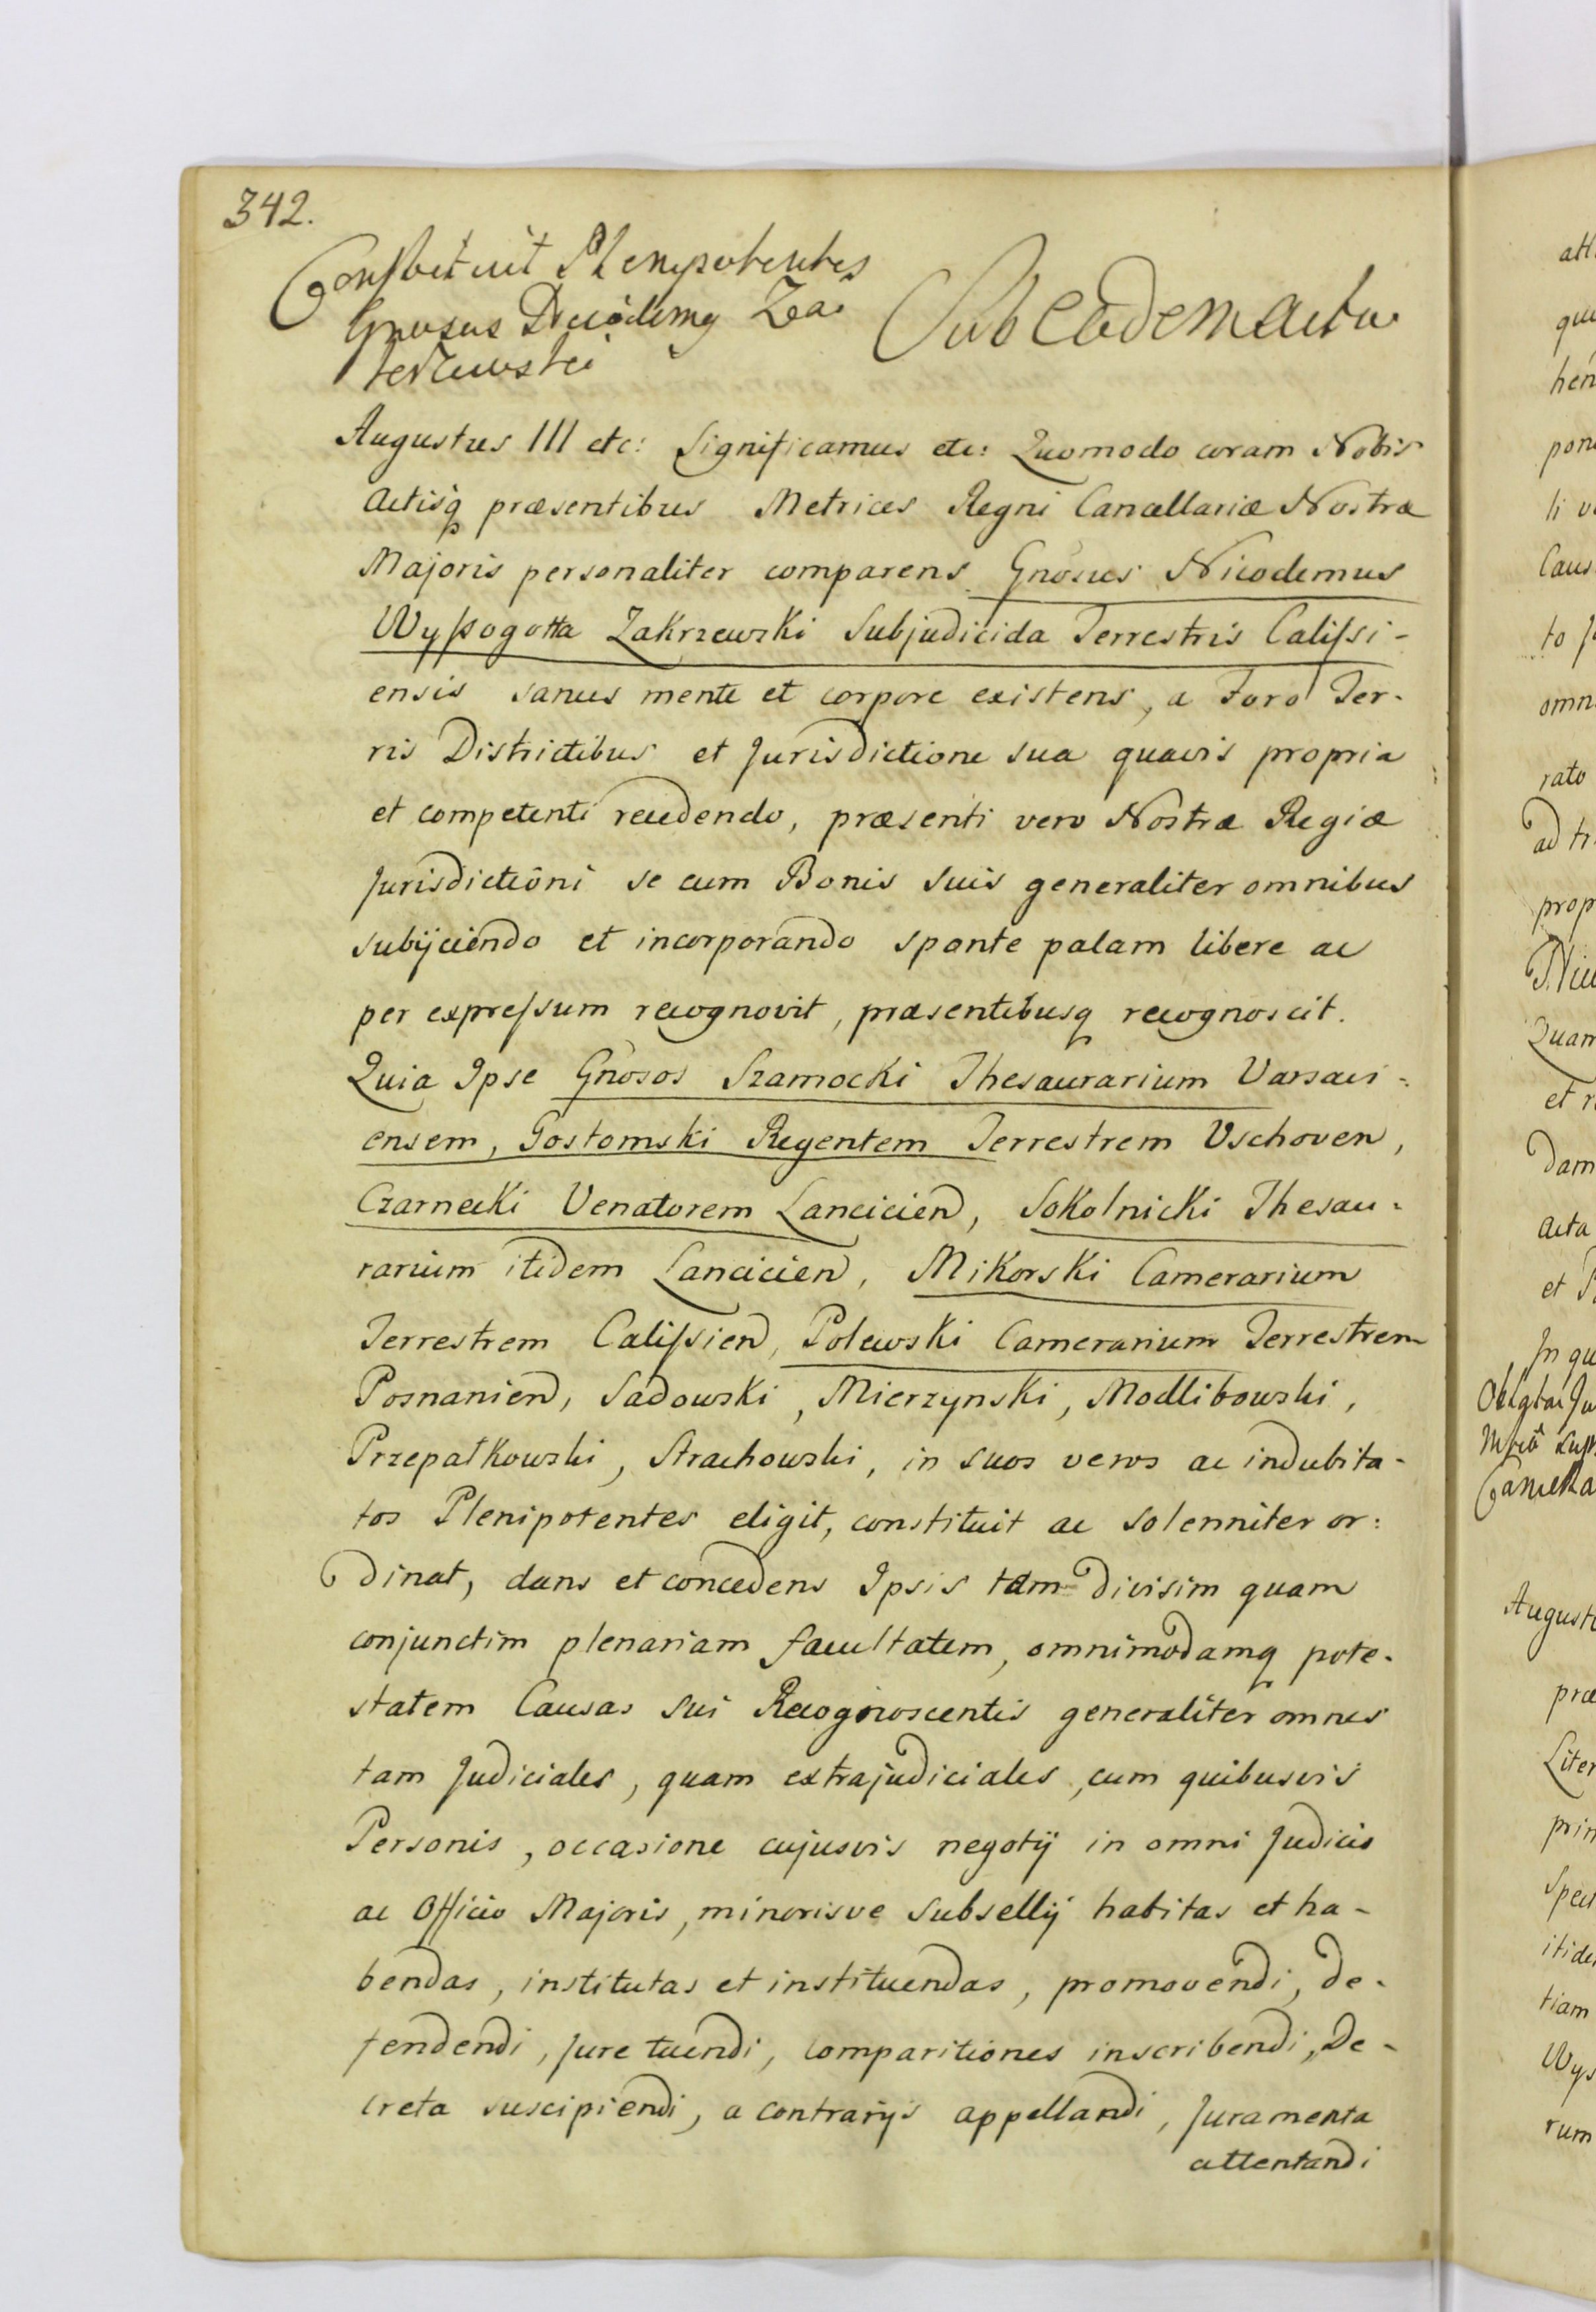 342.
Constituit Plenipotentes
Gnosus Nicodemg Za
krzewski
Sub eadem actu
Augustus III etc: Significamus etc: Quomodo coram Nobis
Actisq præsentibus Metrices Regni Cancellariæ Nostræ
Majoris personaliter comparens Gnosus Nicodemus
Wyssogotta Zakrzewski Subjudicida Terrestris Calissi-
ensis sanus mente et corpore existens, a Foro Ter-
ris Districtibus et Jurisdictione sua quavis propria
et competenti recedendo, præsenti vero Nostræ Regiæ
Jurisdictioni se cum Bonis suis generaliter omnibus
subijciendo et incorporando sponte palam libere ac
per expressum recognovit, præsentibusq recognoscit.
Quia Ipse Gnosos Szamocki Thesaurarium Varsavi-
ensem, Gostomski Regentem Terrestrem Vschoven,
Czarnecki Venatorem Lancicien, Sokolnicki Thesau-
rarium itidem Lancicien, Mikorski Camerarium
Terrestrem Calissien, Polewski Camerarium Terrestrem
Posnanien, Sadowski, Mierzynski, Modlibowski,
Przepałkowski, Strachowski, in suos veros ac indubita-
tos Plenipotentes eligit, constituit ac solenniter or:
dinat, dans et concedens Ipsis tam divisim quam
conjunctim plenariam facultatem, omnimodamq pote-
statem Causas sui Recognoscentis generaliter omnes
tam Judiciales, quam extrajudiciales, cum quibusvis
Personis, occasione cujusvis negotij in omni Judicio
ac Officio Majoris, minorisve subsellij habitas et ha-
bendas, institutas et instituendas, promovendi, de-
fendendi, jure tuendi, comparitiones inscribendi, De-
creta suscipiendi, a contrarijs appellandi, Juramenta
attentandi